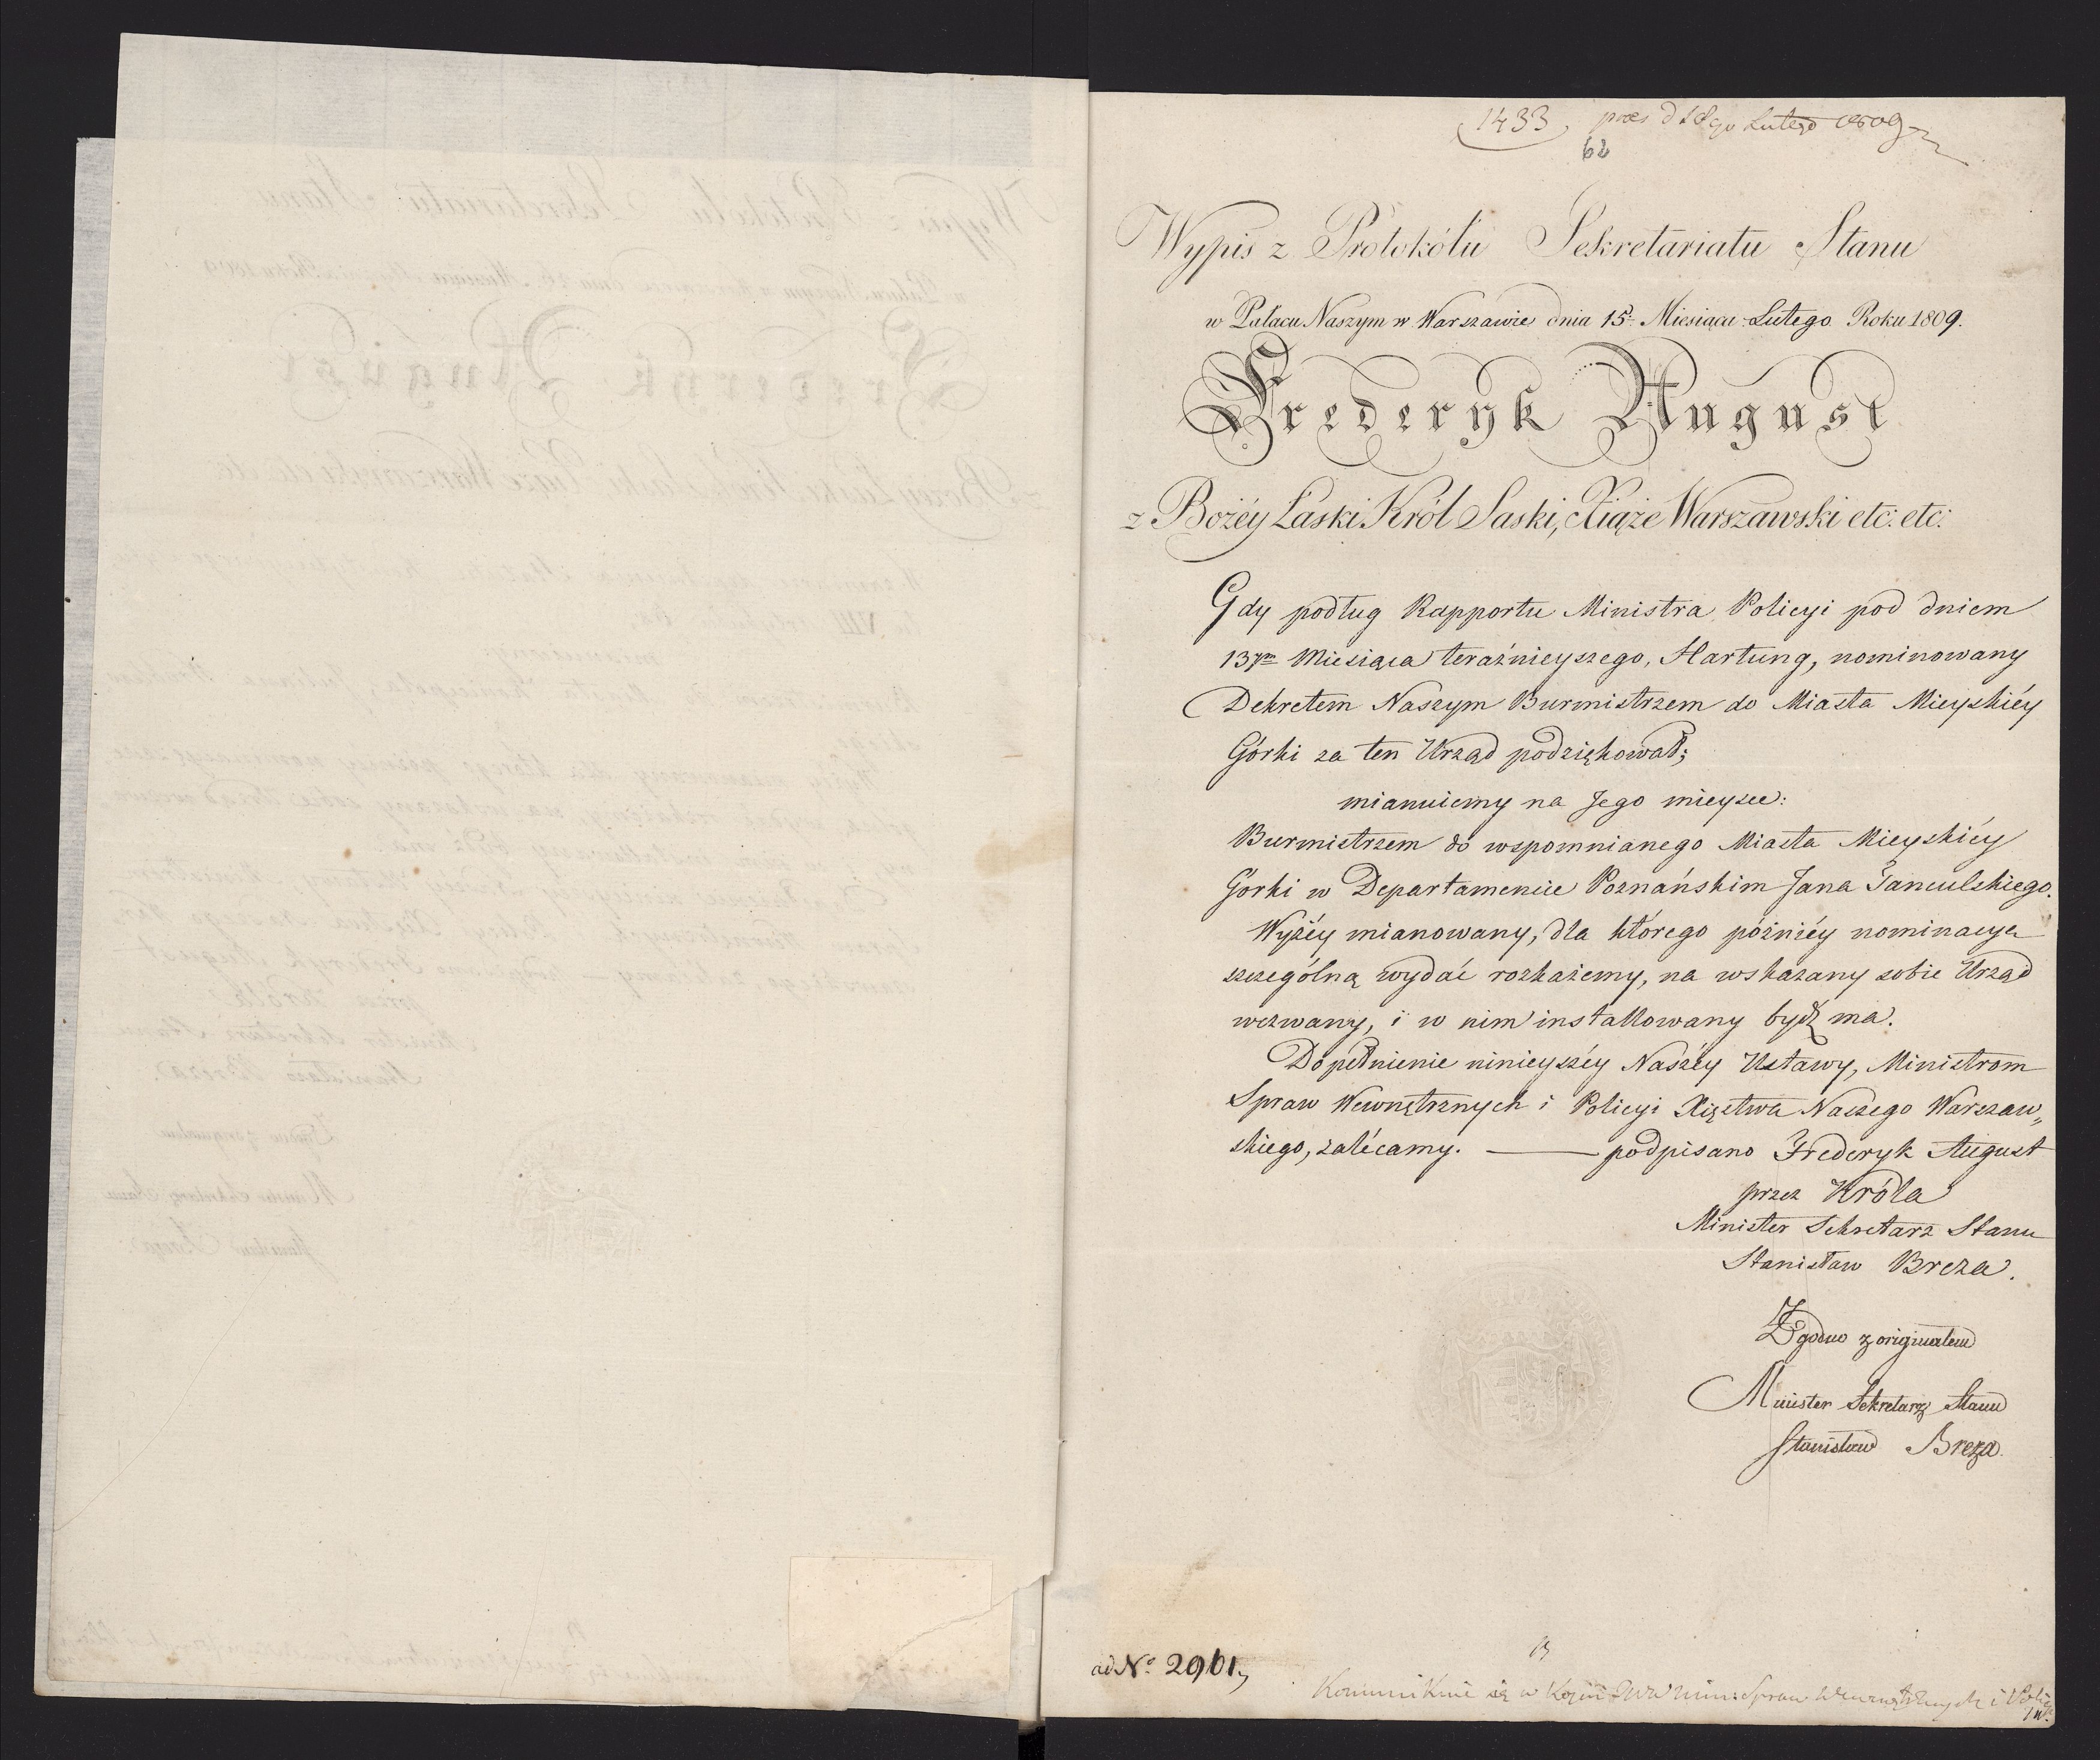 1433, præs d 18go Lutego 1809
62
Wypis z Protokółu Sekretariatu Stanu
w Pałacu Naszym w Warszawie dnia 15. Miesiąca Lutego Roku 1809.
Frederyk August
z Bożéy Łaski Król Saski, Xiąże Warszawski etc: etc:
Gdy podług Rapportu Ministra Policyi pod dniem
13ym Miesiąca teraźnieyszego, Hartung, nominowany
Dekretem Naszym Burmistrzem do Miasta Mieyskiéy
Górki za ten Urząd podziękował;
mianuiemy na Jego mieysce:
Burmistrzem do wspomnianego Miasta Mieyskiéy
Górki w Departamencie Poznańskim Jana
Wyżéy mianowany, dla którego późniéy nominacya
szczególną wydać rozkażemy, na wskazany sobie Urząd
wezwany, i w nim installowany bydź ma.
Dopełnienie ninieyszéy Naszéy Ustawy, Ministrom
Spraw Wewnętrznych i Policyi Xięstwa Naszego Warszaw„
skiego, zalécamy. — podpisano Frederyk August
przez Króla
Minister Sekretarz Stanu
Stanisław Breza.
Zgodno z originałem
Minister Sekretarz Stanu
Stanisław Breza
ad No: 2961,
Kommunikuie się w Kopii Min: Spraw Wewnętrznych i Policyi